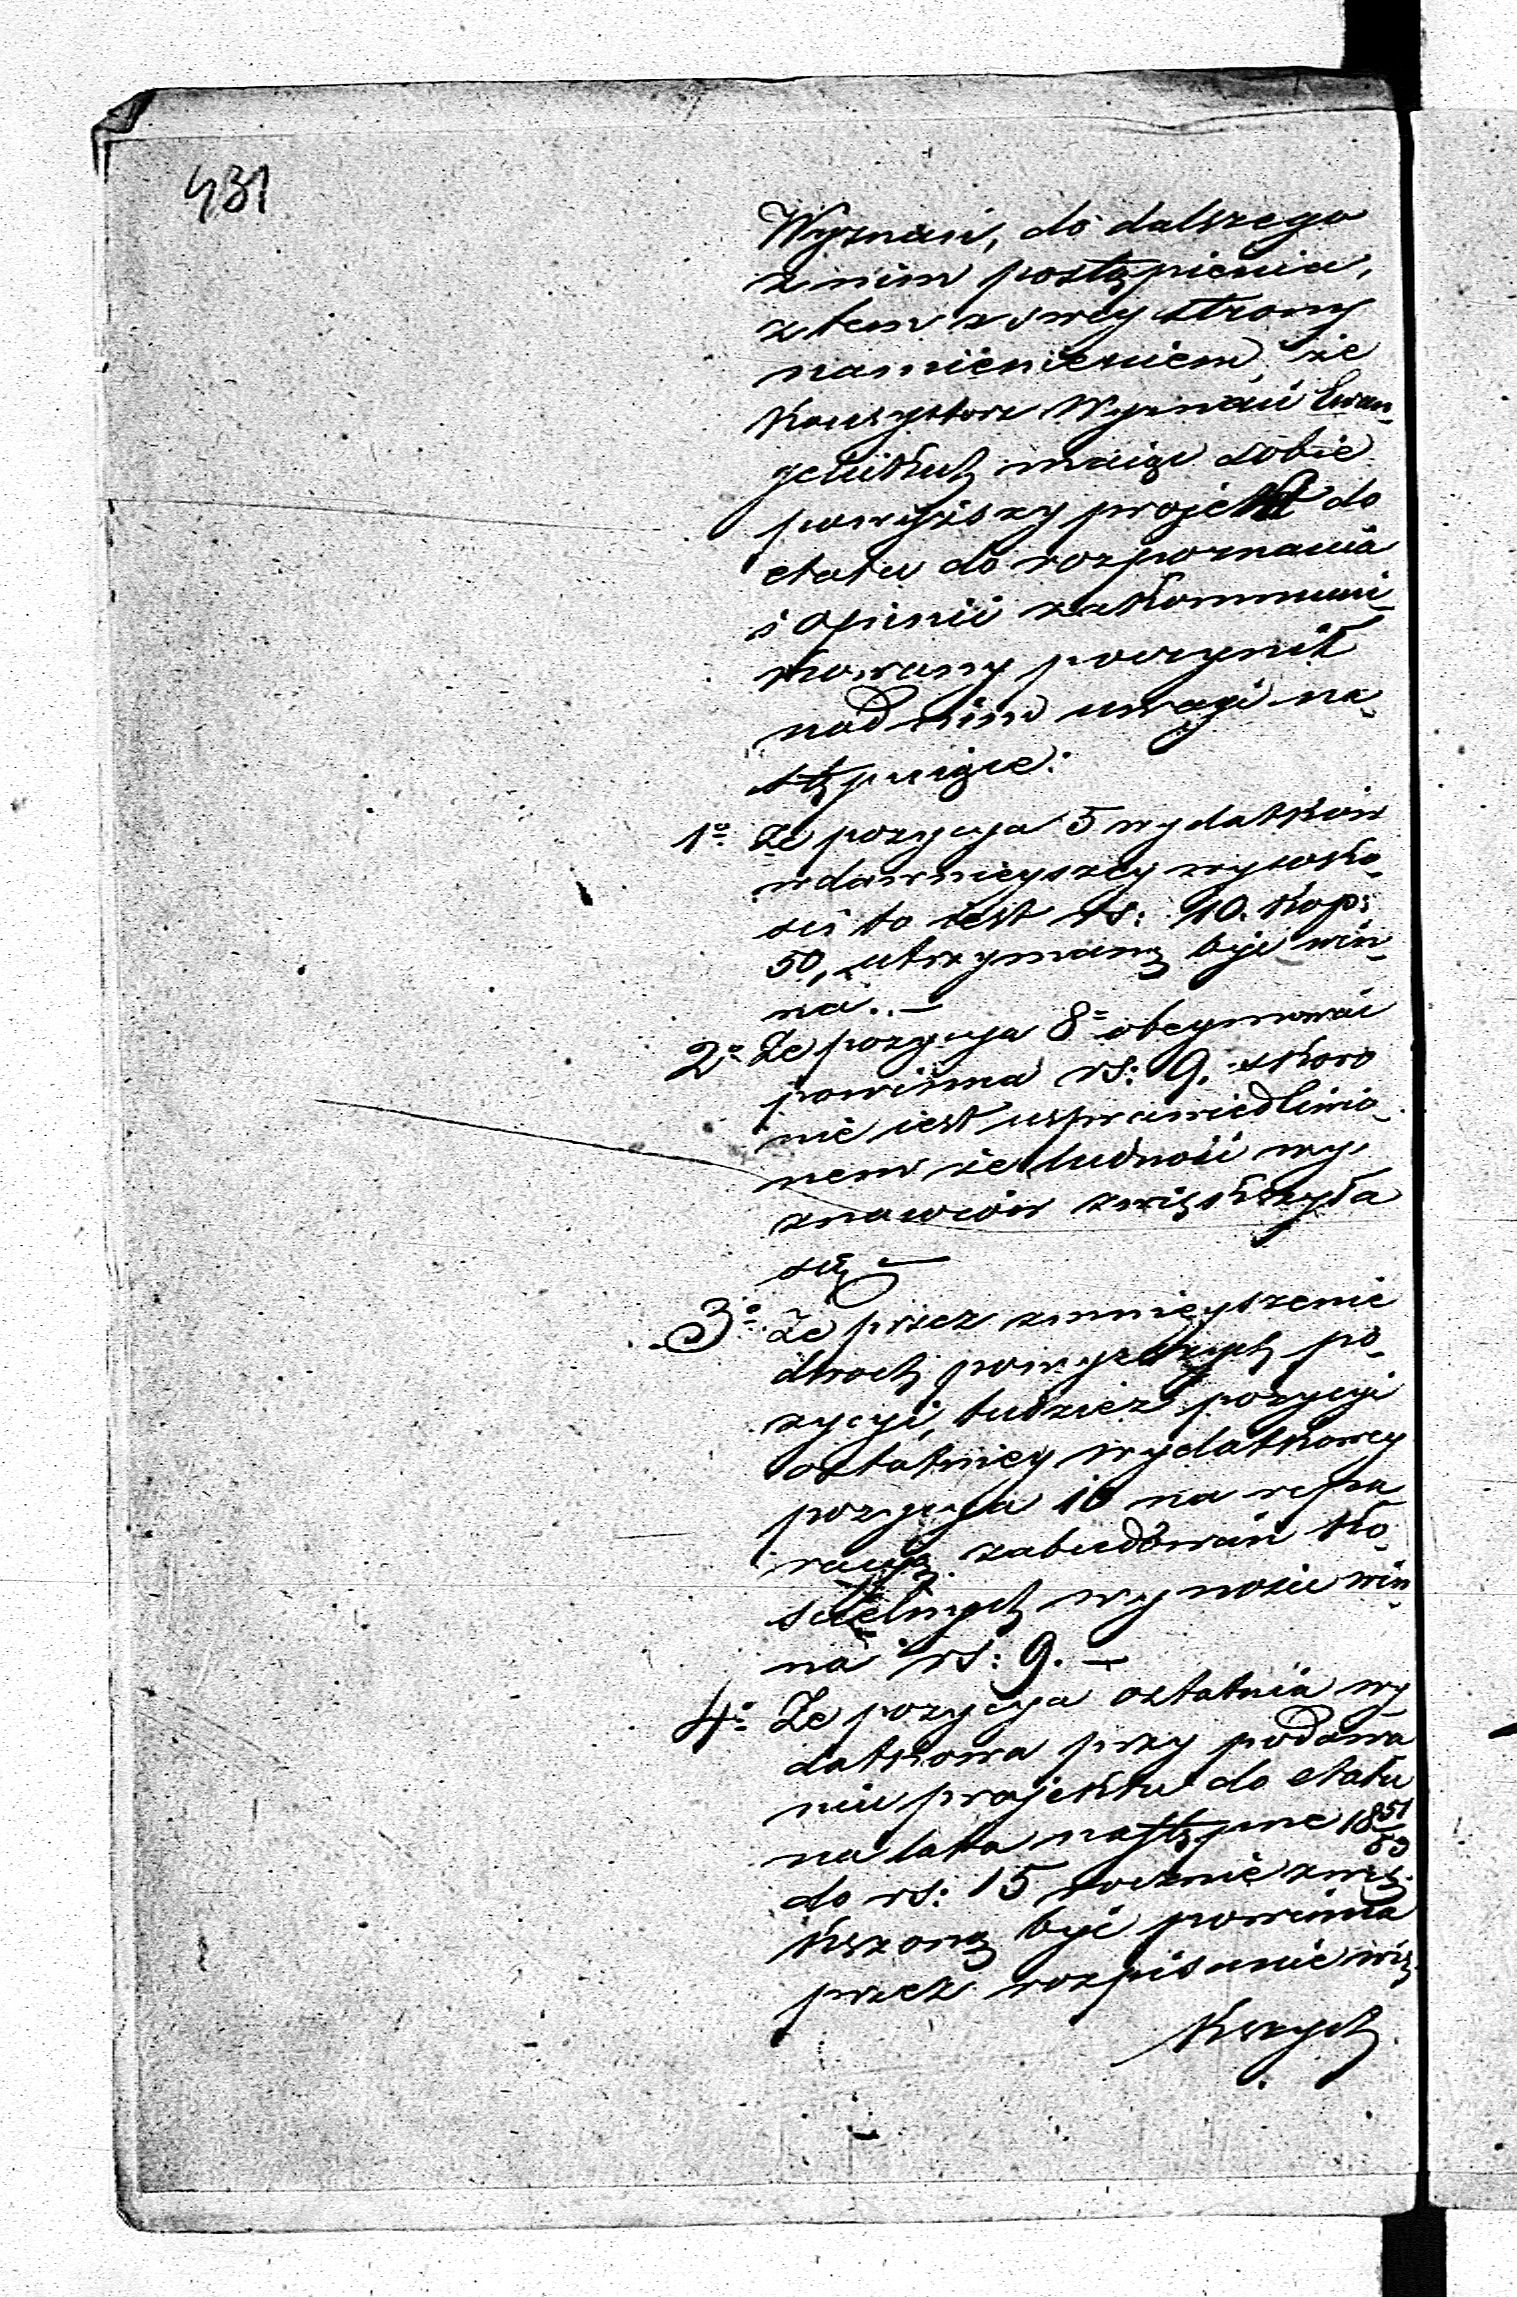 431
Wyznań, do dalszego
z nim postąpienia,
z tem z swey strony
namienieniem, że
Konsystorz Wyznań Ewan-
gelickich maiąc sobie
powyższy projekt do
etatu do rozpoznania
i opinii zakommuni-
kowany poczynił
nad nim uwagi na-
stępuiące:
1o. Że pozycya 5 wydatków
w dawnieyszey wysoko-
ści to iest rs: 10. kop:
50, utrzymaną być win-
na. —
2o. Że pozycya 8a obeymować
powinna rs: 9. skoro
nie iest usprawiedliwio-
nem że ludność wy-
znawców zwiększyła
się —
3o. Że przez zmnieyszenie
dwóch powyższych po-
zycyi, tudzież pozycyi
ostatniey wydatkowey
pozycya 10 na repa-
racyą zabudowań ko-
ścielnych wynosić win-
na rs: 9. —
4o. Że pozycya ostatnia wy-
datkowa przy podawa-
niu projektu do etatu
na lata następne 1851/53
do rs: 15 rocznie zwię-
kszoną być powinna
przez rozpisanie wię-
kszych